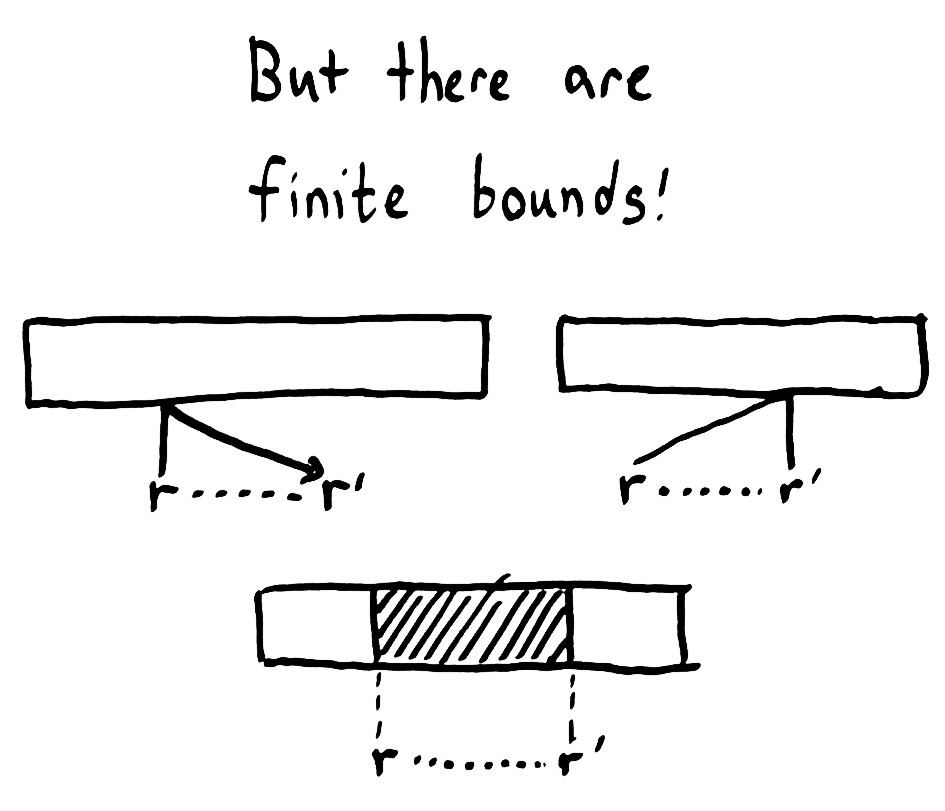 But there are
finite bounds!
r ...... r' r ...... r'
r ......... r'